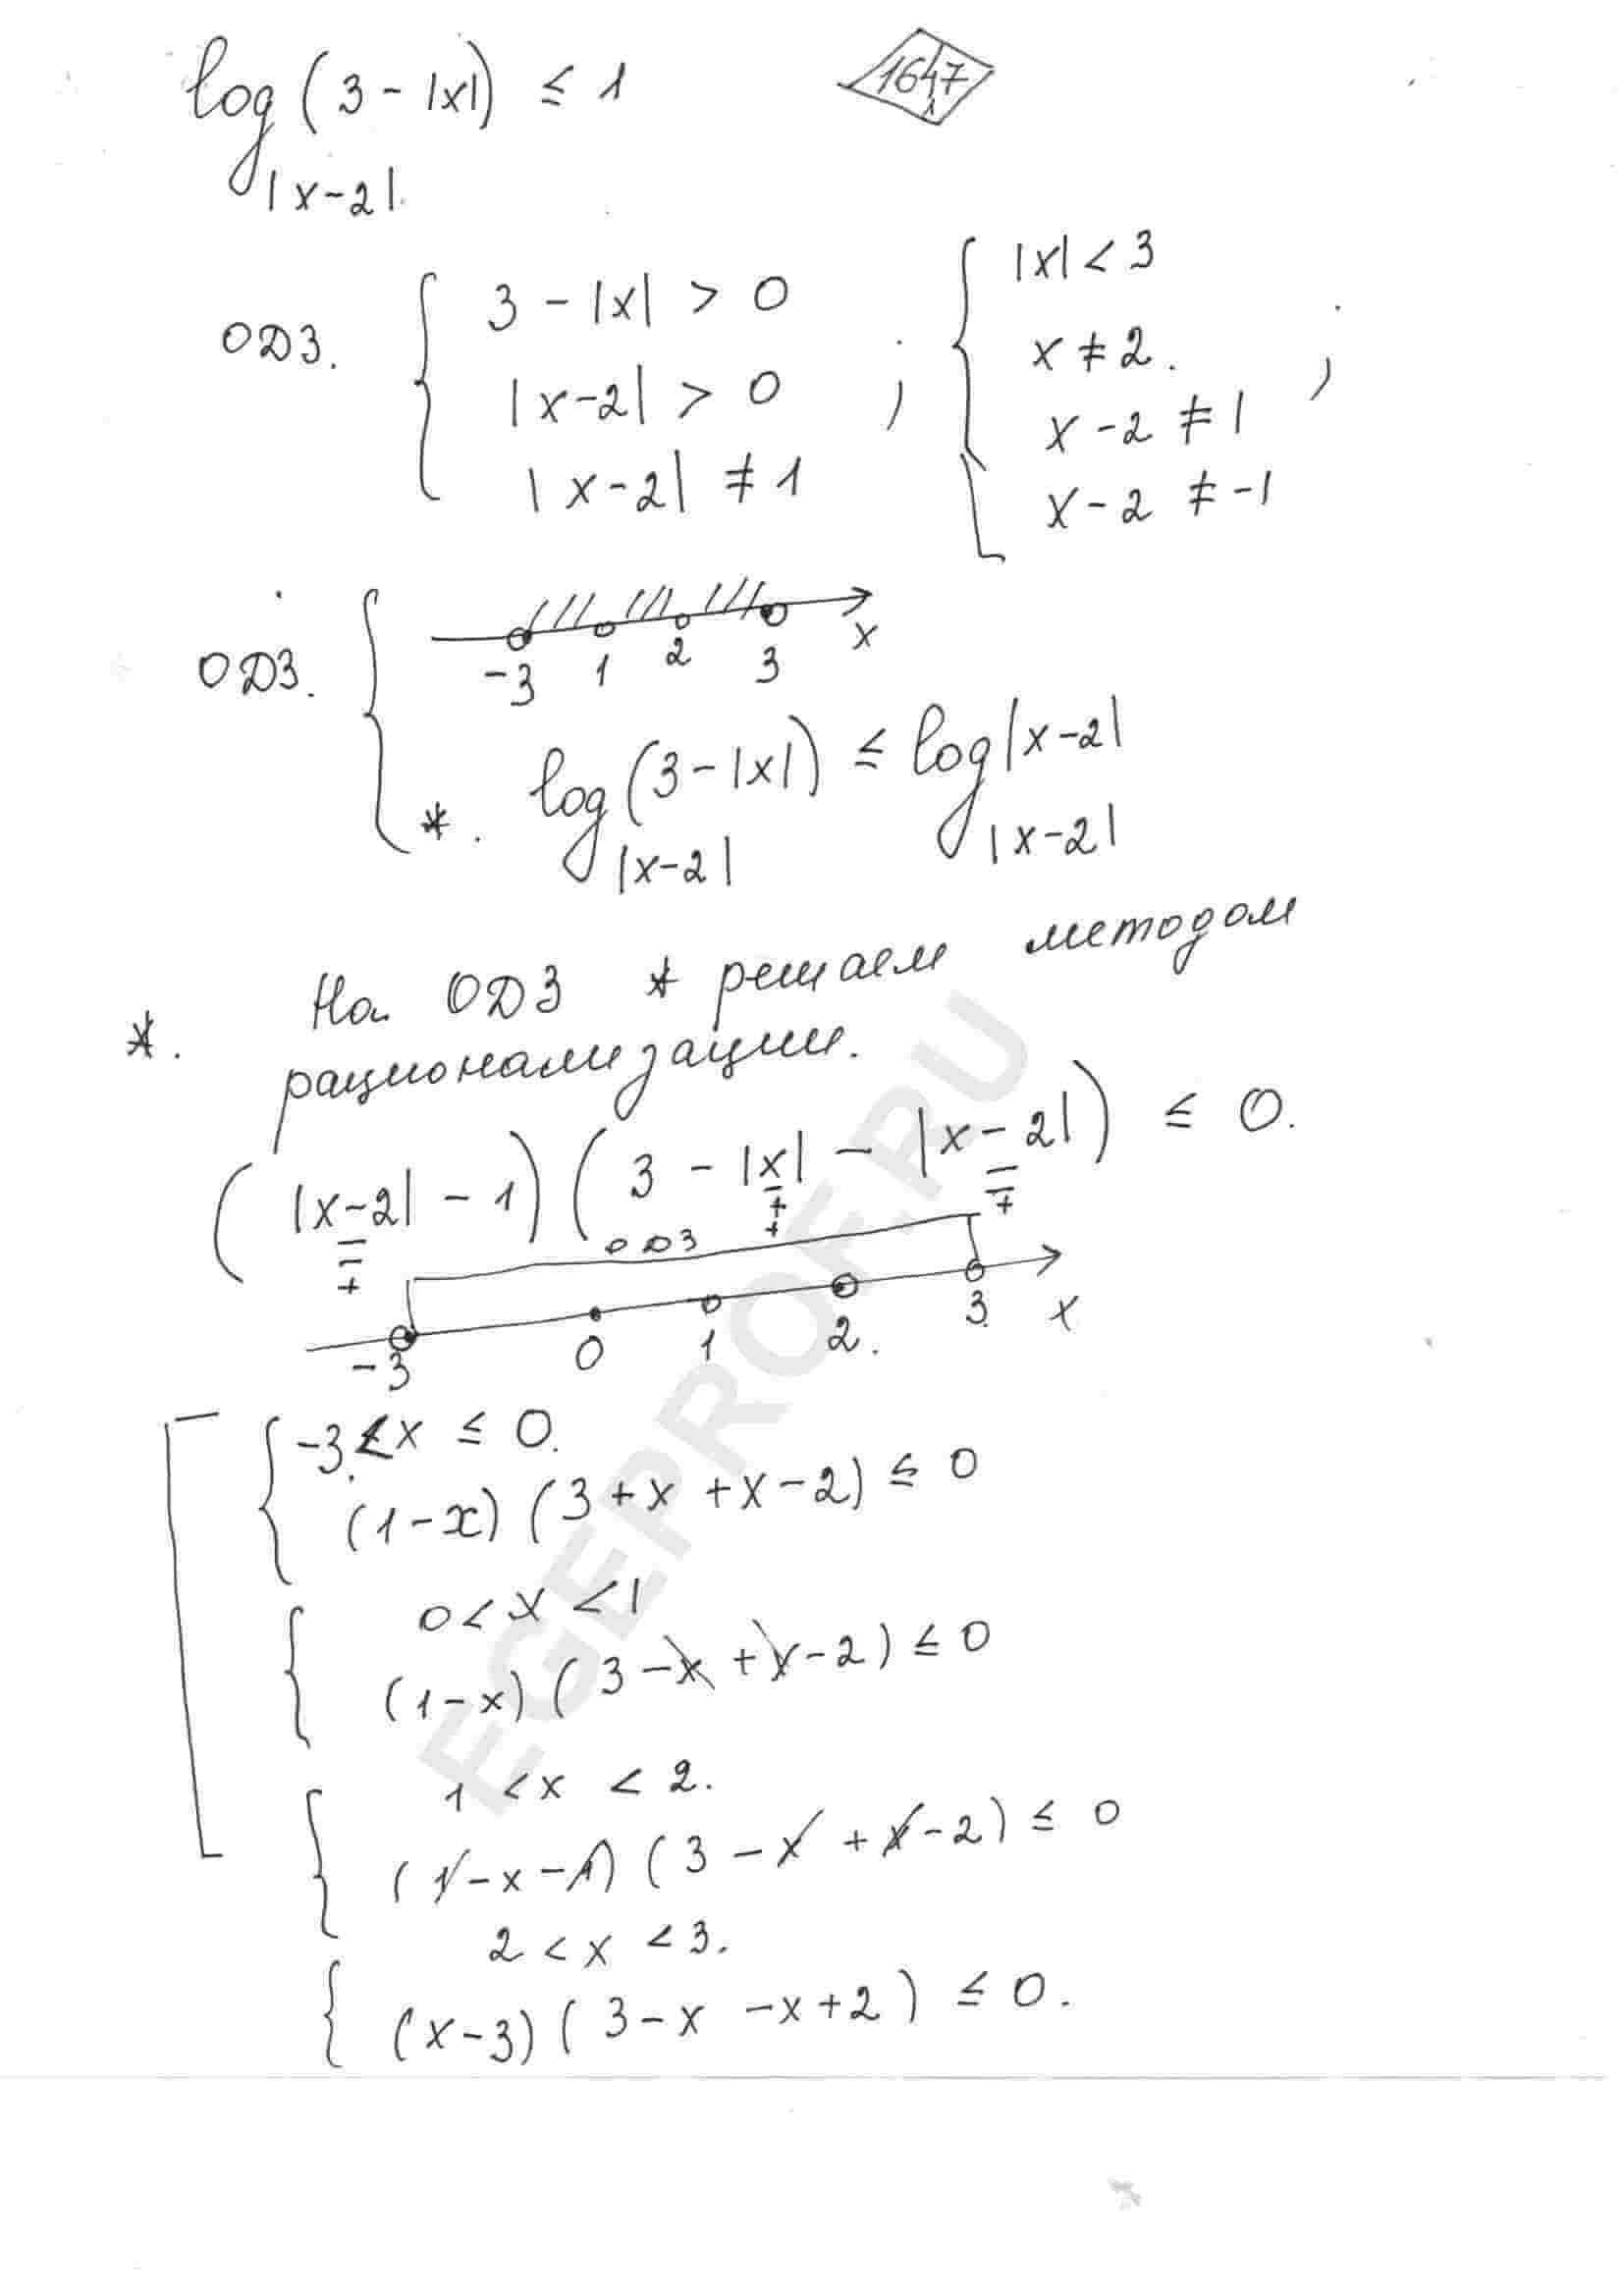 log (3 - |x|) ≤ 1
1647
1
|x-2|.
ОДЗ. { 3 - |x| > 0 ; { |x| < 3 ;
|x-2| > 0 x ≠ 2.
|x-2| ≠ 1 x-2 ≠ 1
x-2 ≠ -1
ОДЗ. {
-3 1 2 3 x
*. log (3-|x|) ≤ log |x-2|
|x-2| |x-2|
*. На ОДЗ * решаем методом
рационализации.
( |x-2| - 1) ( 3 - |x| - |x-2| ) ≤ 0.
- - -
- + -
+ + +
ОДЗ
-3 0 1 2. 3. x
[ { -3 < x ≤ 0.
(1-x) (3+x+x-2) ≤ 0
{ 0 < x < 1
(1-x) (3-x+x-2) ≤ 0
{ 1 < x < 2.
(1-x-1) (3-x+x-2) ≤ 0
{ 2 < x < 3.
(x-3) (3-x-x+2) ≤ 0.
EGEPROF.RU